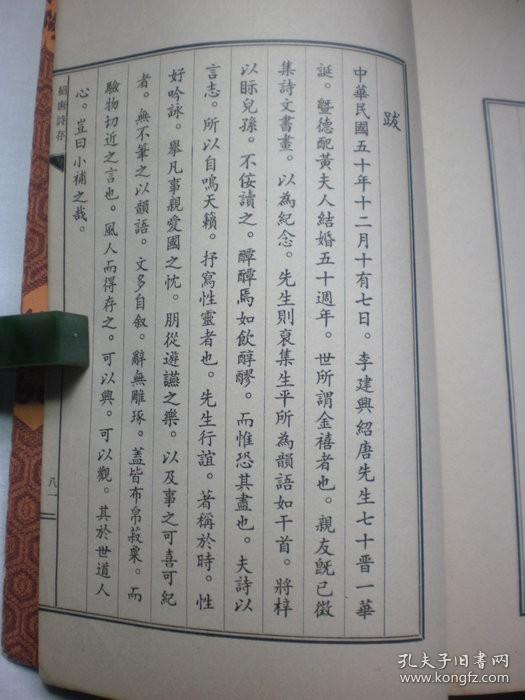 跋
中華民國五十年十二月十有七日。李建興紹唐先生七十晋一華
誕。曁德配黃夫人結婚五十週年。世所謂金禧者也。親友旣已徵
集詩文書畫。以為紀念。先生則裒集生平所為韻語如干首。將梓
以眎兒孫。不佞讀之。醰醰焉如飲醇醪。而惟恐其盡也。夫詩以
言志。所以自鳴天籟。抒寫性靈者也。先生行誼。著稱於時。性
好吟詠。舉凡事親愛國之忱。朋從遊讌之樂。以及事之可喜可紀
者。無不筆之以韻語。文多自叙。辭無雕琢。蓋皆布帛菽粟。而
驗物切近之言也。風人而得存之。可以興。可以觀。其於世道人
心。豈曰小補之哉。
唐詩存
八一
孔夫子旧书网
www.kongfz.com